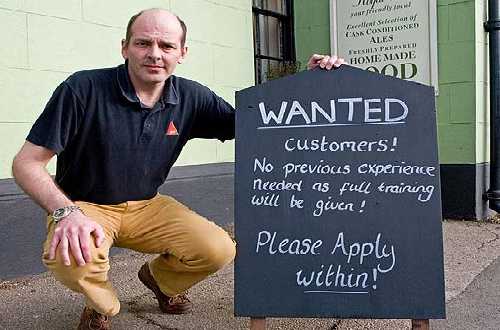 your friendly local
Excellent Selection of
CASK CONDITIONED
ALES
FRESHLY PREPARED
HOME MADE
FOOD
WANTED
customers!
No previous experience
needed as full training
will be given!
Please Apply
within!